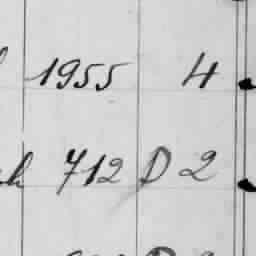 1955 4
712 D 2